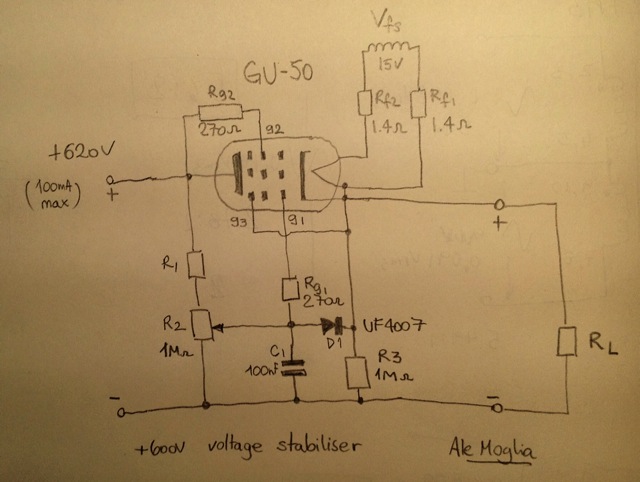 Vfs
15V
GU-50
Rg2
270Ω
g2
Rf2
1.4Ω
Rf1
1.4Ω
+620V
(100mA max)
+
g3
g1
+
R1
Rg1
270Ω
R2
1MΩ
D1
UF4007
C1
100nF
R3
1MΩ
RL
-
-
+600V voltage stabiliser
Ale Moglia